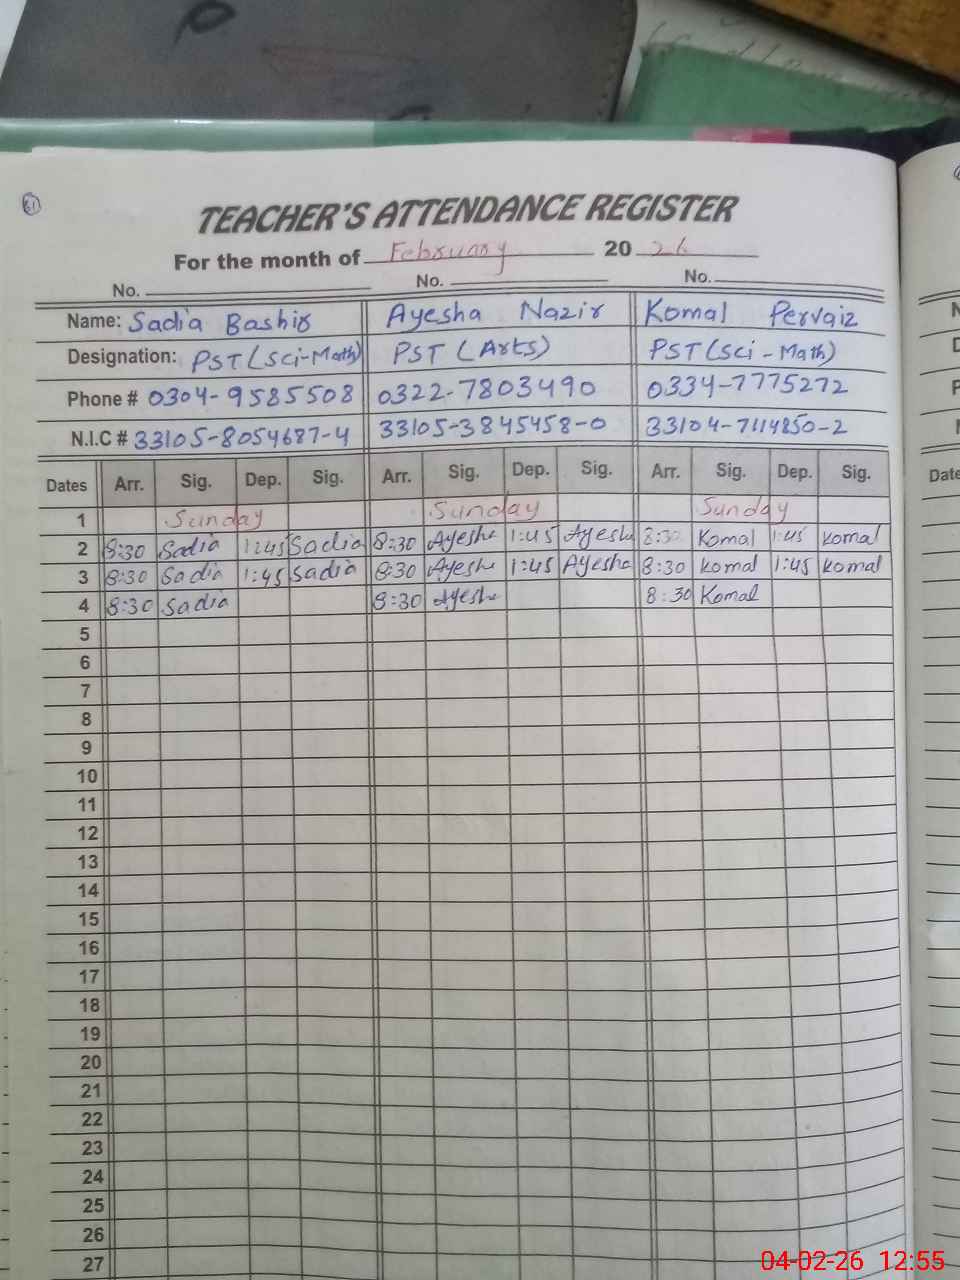 61
TEACHER'S ATTENDANCE REGISTER
For the month of February 20 26
No. No. No.
Name: Sadia Bashir Ayesha Nazir Komal Pervaiz
Designation: PST (Sci-Math) PST (Arts) PST (Sci - Math)
Phone # 0304-9585508 0322-7803490 0334-7775272
N.I.C # 33105-8054687-4 33105-3845458-0 33104-7114850-2
Dates Arr. Sig. Dep. Sig. Arr. Sig. Dep. Sig. Arr. Sig. Dep. Sig.
1 Sunday Sunday Sunday
2 8:30 Sadia 1:45 Sadia 8:30 Ayesha 1:45 Ayesha 8:30 Komal 1:45 Komal
3 8:30 Sadia 1:45 Sadia 8:30 Ayesha 1:45 Ayesha 8:30 Komal 1:45 Komal
4 8:30 Sadia 8:30 Ayesha 8:30 Komal
5
6
7
8
9
10
11
12
13
14
15
16
17
18
19
20
21
22
23
24
25
26
27
Date
04-02-26 12:55